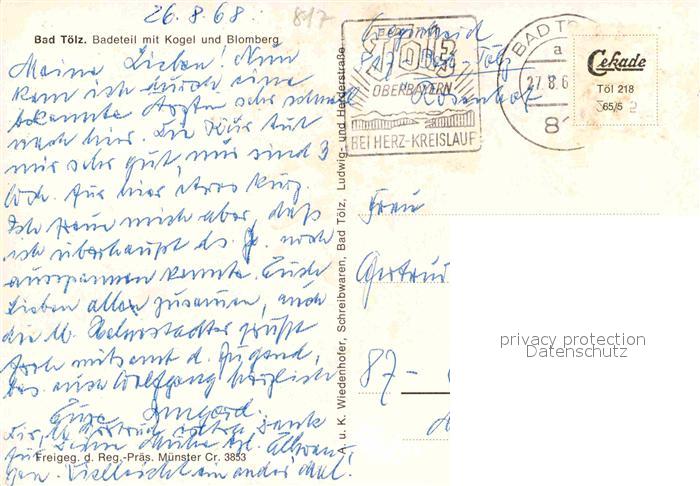 26.8.68
817
Bad Tölz. Badeteil mit Kogel und Blomberg
Meine Lieben! Nun
kam ich durch eine
bekannte Ärztin sehr schnell
nach hier. Die Kur tut
mir sehr gut, nur sind 3
Woch. für hier etwas kurz.
Ich freue mich aber, daß
ich überhaupt ds. J. noch
ausspannen konnte. Euch
Lieben allen zusammen, auch
die grüßt
mitsamt d. Jugend,
Wolfgang herzlich
Eure Irmgard.
Dank
für Deine Mühe
gen. Vielleicht ein ander Mal.
Freigeg. d. Reg.-Präs. Münster Cr. 3853
A. u. K. Wiedenhofer, Schreibwaren, Bad Tölz, Ludwig- und Herderstraße
BAD
TÖLZ
OBERBAYERN
BEI HERZ-KREISLAUF
817 Bad Tölz
BAD TÖ
a
27.8.6
81
Cekade
Töl 218
365/5 2
Frau
Gertrud
87-
privacy protection
Datenschutz